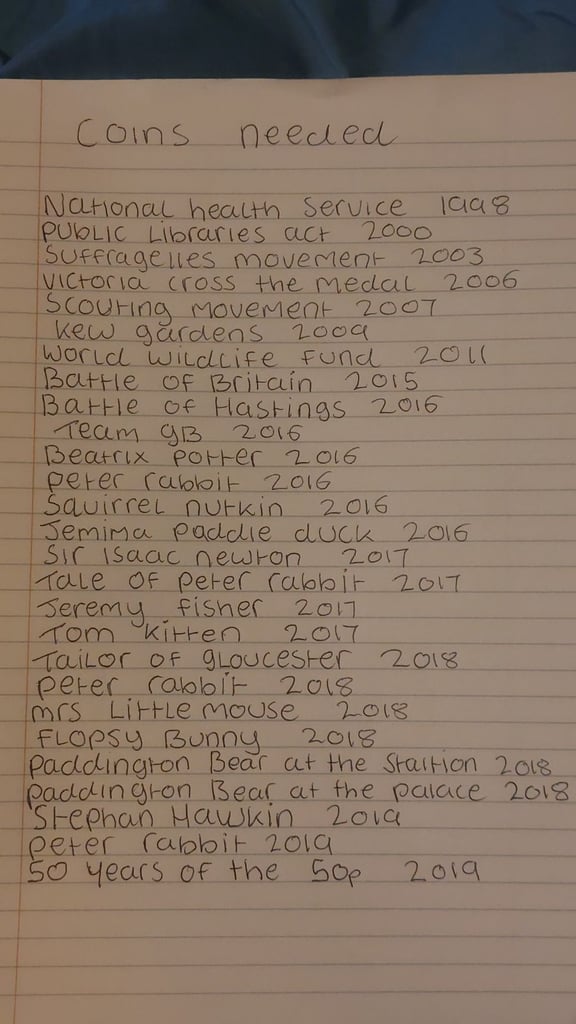 Coins needed
National health Service 1998
Public Libraries act 2000
Suffragettes movement 2003
Victoria cross the medal 2006
Scouting movement 2007
Kew gardens 2009
World wildlife fund 2011
Battle of Britain 2015
Battle of Hastings 2016
Team gB 2016
Beatrix potter 2016
peter rabbit 2016
Squirrel nutkin 2016
Jemima paddle duck 2016
Sir Isaac newton 2017
Tale of peter rabbit 2017
Jeremy fisher 2017
Tom kitten 2017
Tailor of gloucester 2018
peter rabbit 2018
mrs Little mouse 2018
Flopsy Bunny 2018
paddington Bear at the Staition 2018
paddington Bear at the palace 2018
Stephan Hawkin 2019
peter rabbit 2019
50 years of the 50p 2019